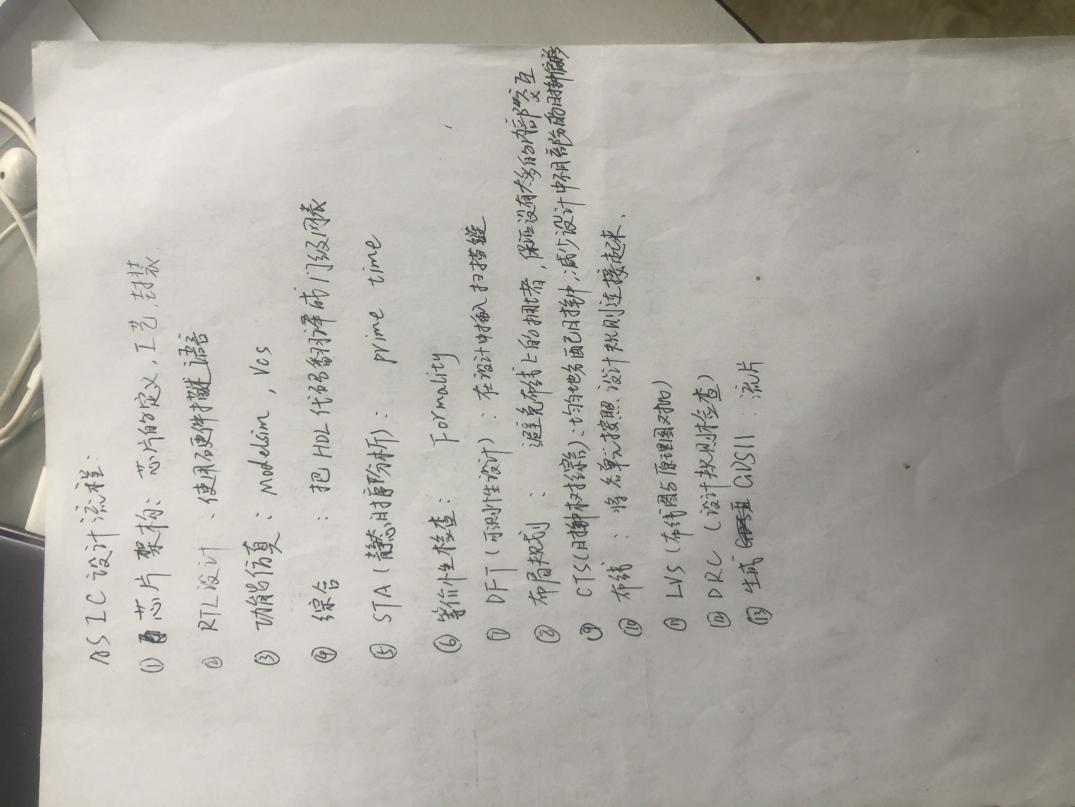 ASIC设计流程:
① 芯片架构: 芯片的定义,工艺,封装
② RTL设计 : 使用硬件描述语言
③ 功能仿真: modelsim , Vcs
④ 综合 : 把HDL代码翻译成门级网表
⑤ STA(静态时序分析): prime time
⑥ 等价性检查: Formality
⑦ DFT(可测性设计): 在设计中插入扫描链
⑧ 布局规划 : 避免布线上的拥堵,保证没有太多的内部交互
⑨ CTS(时钟树综合): 均匀地分配时钟,减少设计中不同部分的时钟偏移
⑩ 布线 : 将各单元按照设计规则连接起来.
⑪ LVS(布线图与原理图对比)
⑫ DRC(设计规则检查)
⑬ 生成 GDSII : 流片